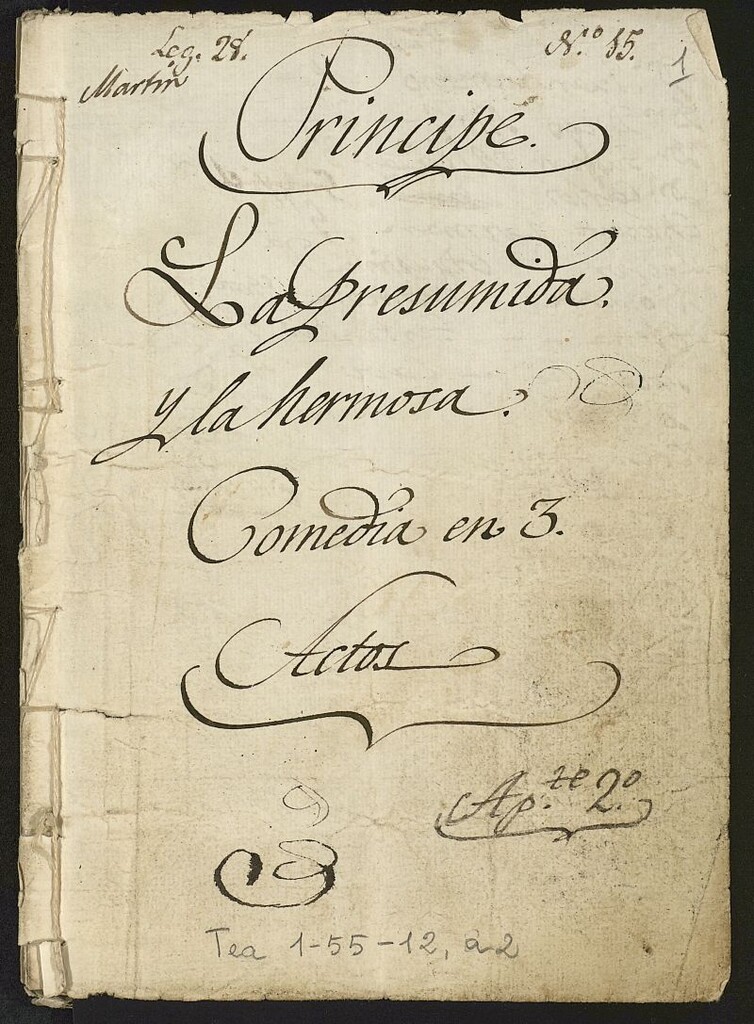 Leg. 28. N.º 15. 1
Martin
Principe.
La presumida.
y la hermosa.
Comedia en 3.
Actos
Ap.te 2.º
Tea 1-55-12, a2